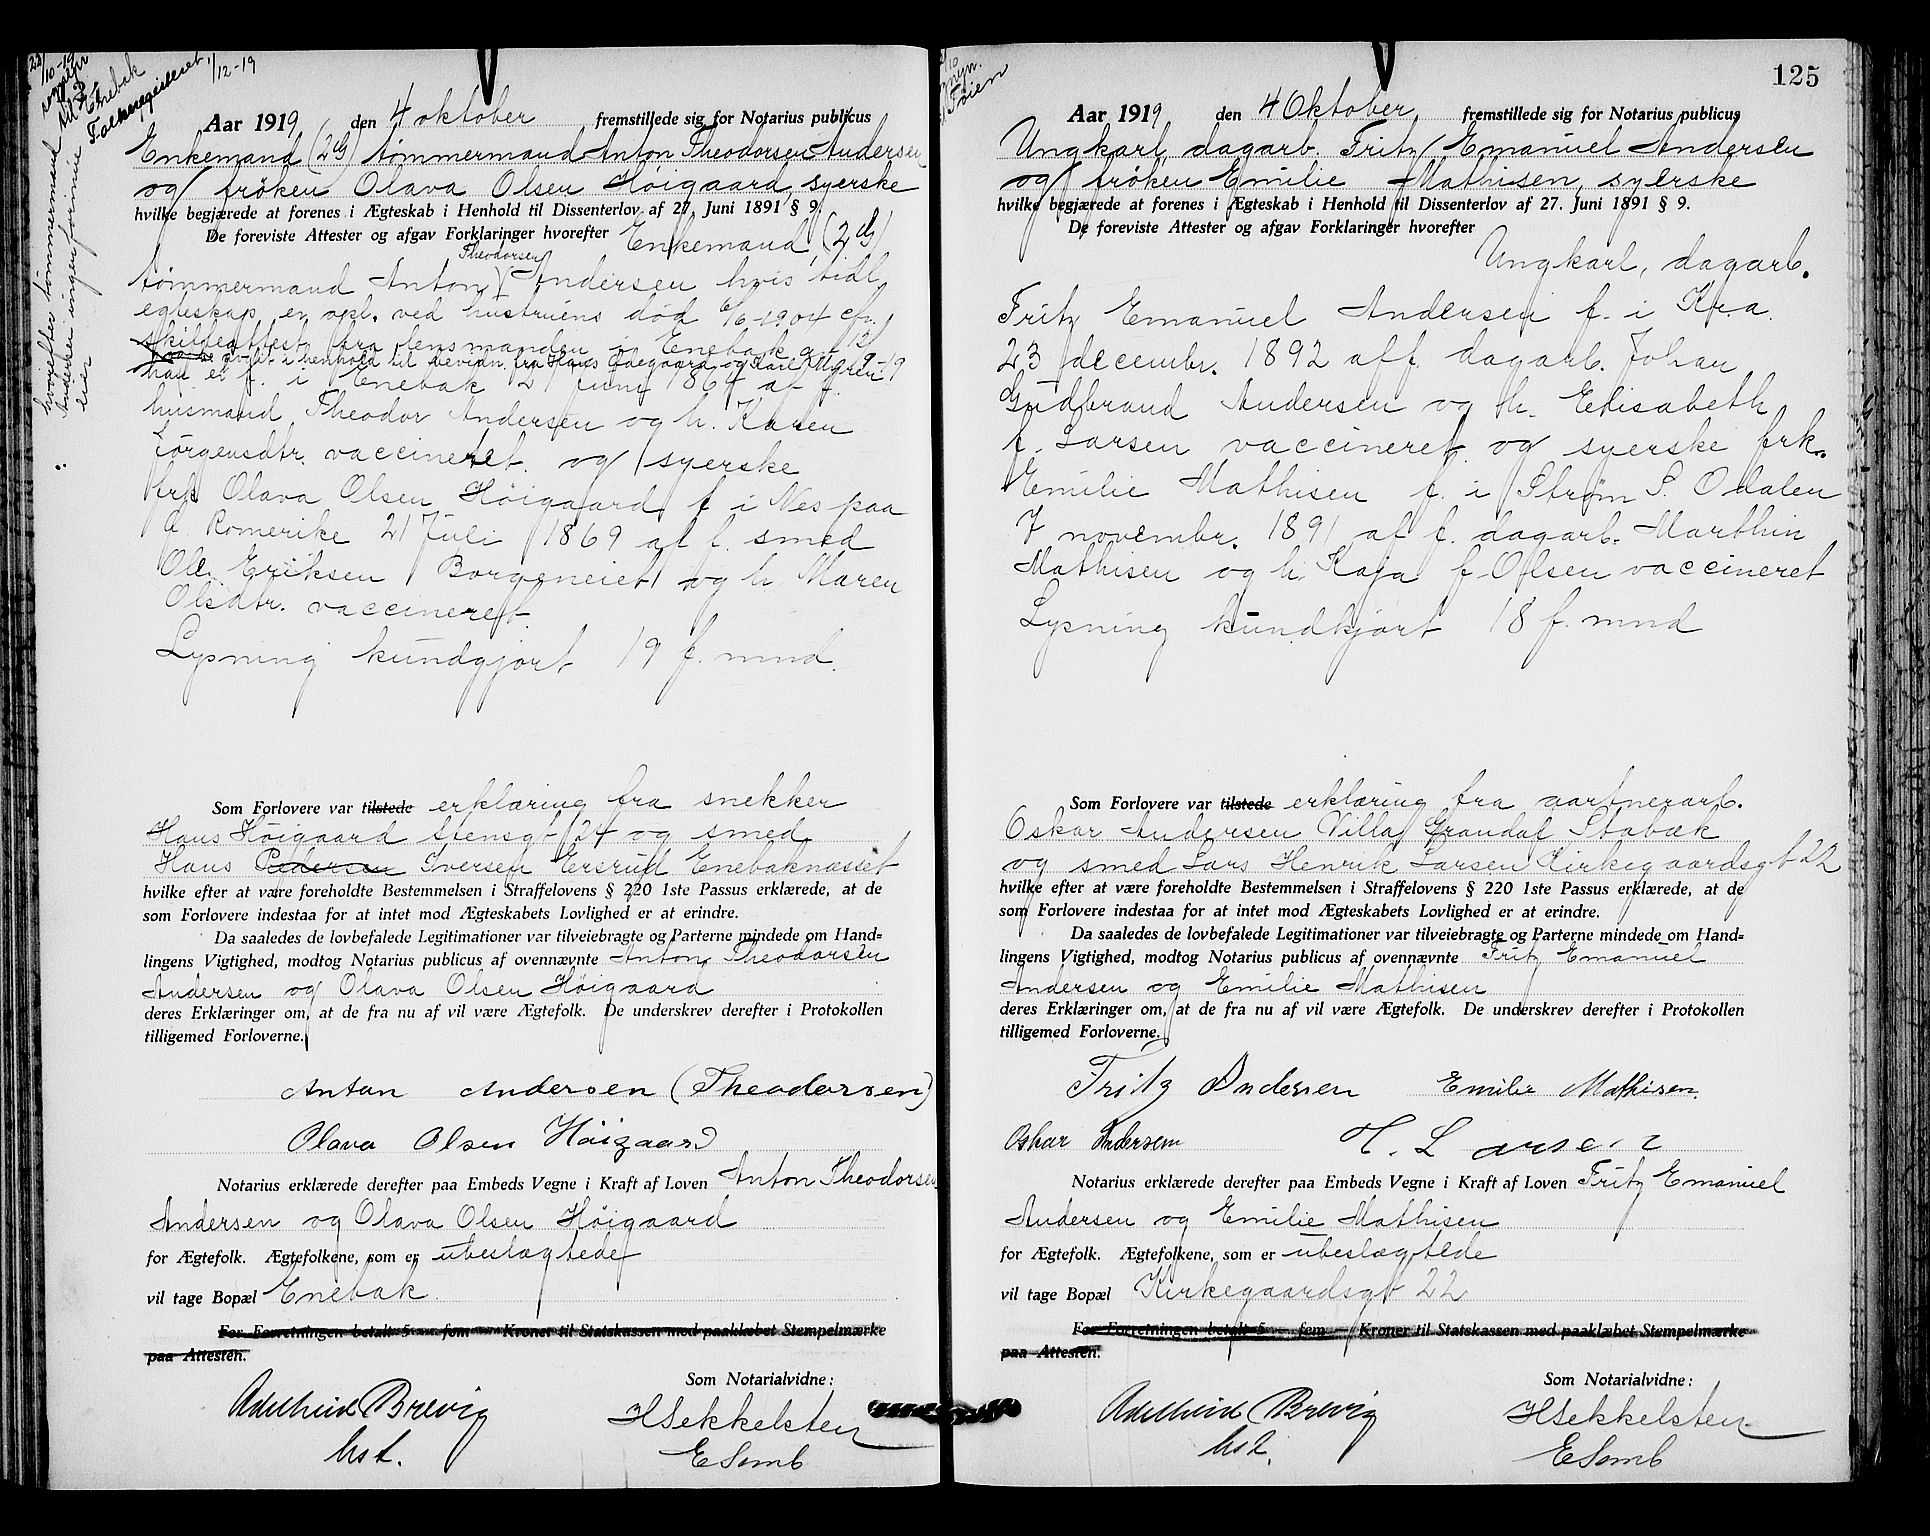 Aar 1919 den 4 oktober fremstillede sig for Notarius publicus
Enkemand (2 g) tømmermand Anton Theodorsen Andersen
og frøken Olava Olsen Høigaard, syerske
hvilke begjærede at forenes i Ægteskab i Henhold til Dissenterlov af 27. Juni 1891 § 9.
De foreviste Attester og afgav Forklaringer hvorefter Enkemand (2 g)
Theodorsen
tømmermand Anton Andersen hvis tidl
egteskap er opl. ved hustruens død 6/6-1904 cfr.
skifteattest fra lensmanden i Enebak av 13/9-19
i henhold til bevidn. fra Hans Ødegaard og Karl Myren
han er f. i Enebak 21 Juni 1864 af f.
husmand Theodor Andersen og h. Karen
Jørgensdtr. vaccineret og syerske
frk Olava Olsen Høigaard f i Nes paa
Ø. Romerike 21 Juli 1869 af f. smed
Ole Eriksen Borgeneiet og h. Maren
Olsdtr. vaccineret.
Lysning kundgjort 19 f. mnd.
Som Forlovere var tilstede erklæring fra snekker
Hans Høigaard Stensgt 24 og smed
Hans Pedersen Iversen Ersrud Enebaknesset
hvilke efter at være foreholdte Bestemmelsen i Straffelovens § 220 1ste Passus erklærede, at de
som Forlovere indestaa for at intet mod Ægteskabets Lovlighed er at erindre.
Da saaledes de lovbefalede Legitimationer var tilveiebragte og Parterne mindede om Hand-
lingens Vigtighed, modtog Notarius publicus af ovennævnte Anton Theodorsen
Andersen og Olava Olsen Høigaard
deres Erklæringer om, at de fra nu af vil være Ægtefolk. De underskrev derefter i Protokollen
tilligemed Forloverne.
Anton Andersen (Theodorsen)
Olava Olsen Høigaard
Notarius erklærede derefter paa Embeds Vegne i Kraft af Loven Anton Theodorsen
Andersen og Olava Olsen Høigaard
for Ægtefolk. Ægtefolkene, som er ubeslægtede
vil tage Bopæl Enebak
For Forretningen betalt 5 fem Kroner til Statskassen med paaklæbet Stempelmærke
paa Attesten.
Som Notarialvidne:
Adelheid Brevig
HSekkelsten
cst.
ESemb
hvorefter tømmermand
Andersen ingen formue
eier
til Enebak
Folkeregisteret 1/12-19
125
Aar 1919 den 4 Oktober fremstillede sig for Notarius publicus
Ungkarl, dagarb. Fritz Emanuel Andersen
og frøken Emilie Mathisen, syerske
hvilke begjærede at forenes i Ægteskab i Henhold til Dissenterlov af 27. Juni 1891 § 9.
De foreviste Attester og afgav Forklaringer hvorefter
Ungkarl, dagarb.
Fritz Emanuel Andersen f. i Kr.a.
23 decembr. 1892 af f. dagarb. Johan
Gudbrand Andersen og h. Elisabeth
f. Larsen vaccineret og syerske frk.
Emilie Mathisen f. i Strøm S. Odalen
7 novembr. 1891 af f. dagarb. Marthin
Mathisen og h. Kaja f. Olsen vaccineret
Lysning kundkjort 18 f. mnd
Som Forlovere var tilstede erklæring fra gartnerarb.
Oskar Andersen Villa Grandaf Stabæk
og smed Lars Henrik Larsen Kirkegaardsgt 22
hvilke efter at være foreholdte Bestemmelsen i Straffelovens § 220 1ste Passus erklærede, at de
som Forlovere indestaa for at intet mod Ægteskabets Lovlighed er at erindre.
Da saaledes de lovbefalede Legitimationer var tilveiebragte og Parterne mindede om Hand-
lingens Vigtighed, modtog Notarius publicus af ovennævnte Fritz Emanuel
Andersen og Emilie Mathisen
deres Erklæringer om, at de fra nu af vil være Ægtefolk. De underskrev derefter i Protokollen
tilligemed Forloverne.
Fritz Andersen Emilie Mathisen.
Oskar Andersen H. Larsen
Notarius erklærede derefter paa Embeds Vegne i Kraft af Loven Fritz Emanuel
Andersen og Emilie Mathisen
for Ægtefolk. Ægtefolkene, som er ubeslægtede
vil tage Bopæl Kirkegaardsgt 22
For Forretningen betalt 5 fem Kroner til Statskassen med paaklæbet Stempelmærke
paa Attesten.
Som Notarialvidne:
Adelheid Brevig
HSekkelsten
cst.
ESemb